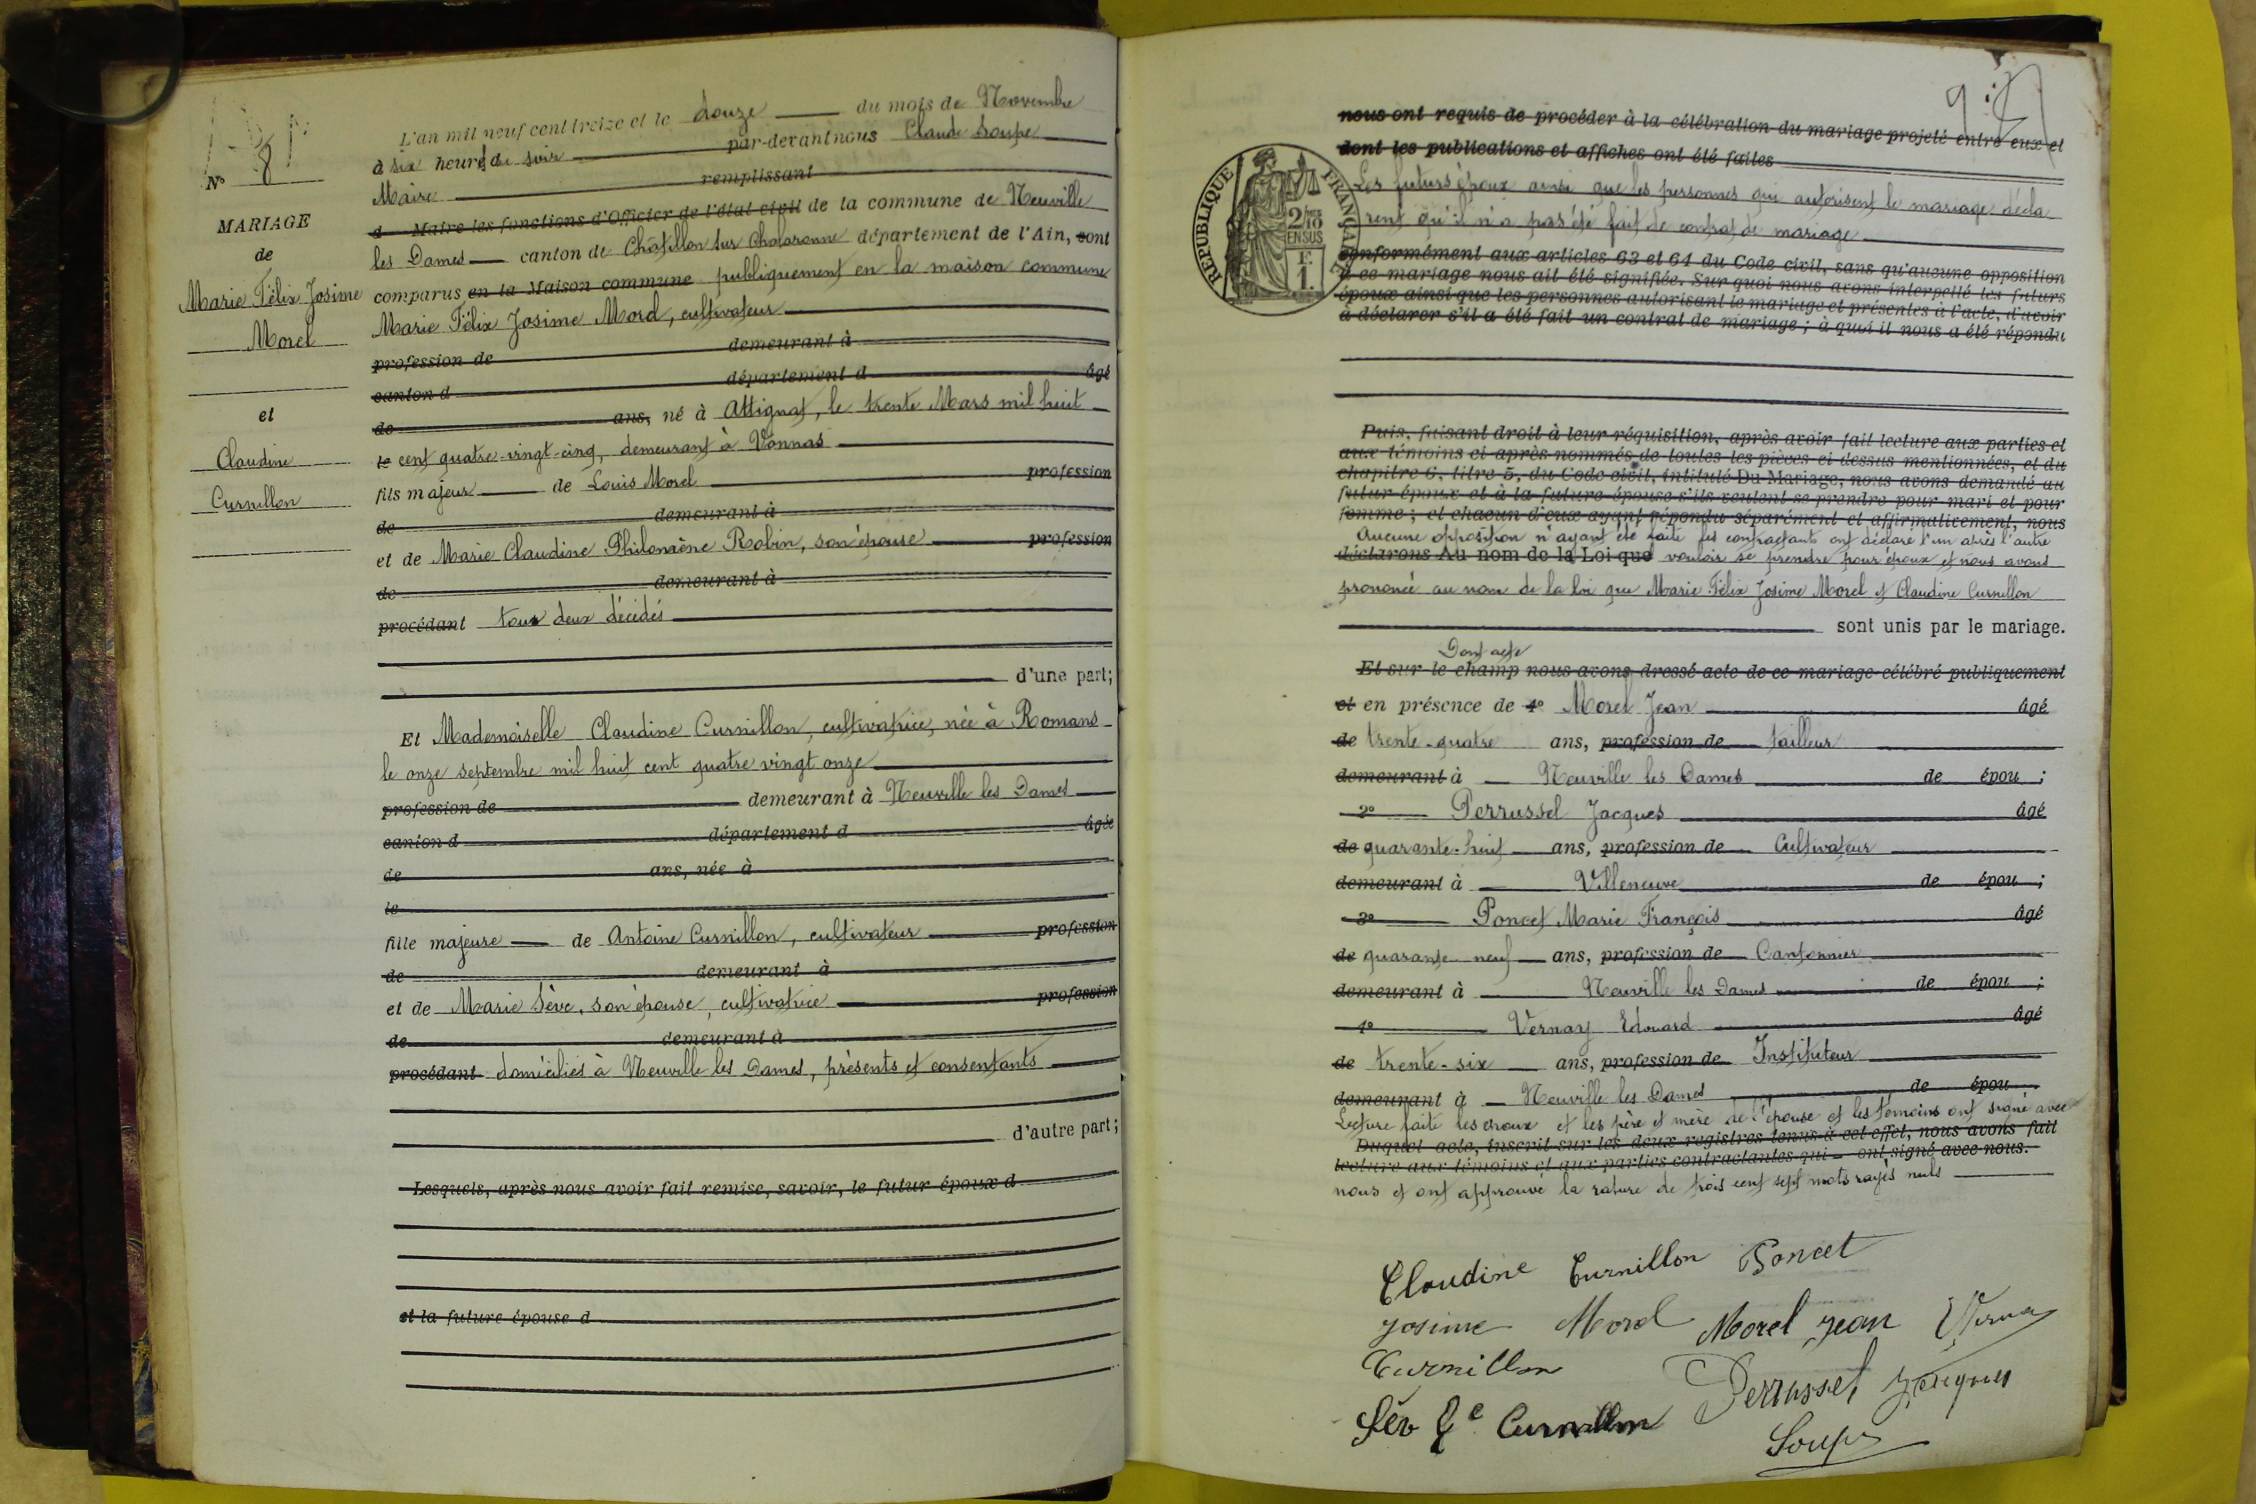 L'an mil neuf cent treize et le douze du mois de Novembre
à six heures du soir par-devant nous Claude Soupe
Maire remplissant
d Maire les fonctions d'Officier de l'état civil de la commune de Neuville
les Dames canton de Châtillon sur Chalaronne département de l'Ain, sont
comparus en la Maison commune publiquement en la maison commune
Marie Félix Josime Morel, cultivateur
profession de demeurant à
canton d département d âgé
de ans, né à Attignat, le trente Mars mil huit
le cent quatre-vingt-cinq, demeurant à Vonnas
fils majeur de Louis Morel profession
de demeurant à
et de Marie Claudine Philomène Robin, son épouse profession
de demeurant à
procédant tous deux décédés
d'une part;
Et Mademoiselle Claudine Curnillon, cultivatrice, née à Romans
le onze septembre mil huit cent quatre vingt onze
profession de demeurant à Neuville les Dames
canton d département d âgée
de ans, née à
le
fille majeure de Antoine Curnillon, cultivateur profession
de demeurant à
et de Marie Sève, son épouse, cultivatrice profession
de demeurant à
procédant domiciliés à Neuville les Dames, présents et consentants
d'autre part;
Lesquels, après nous avoir fait remise, savoir, le futur époux d
et la future épouse d
N° 8
MARIAGE
de
Marie Félix Josime
Morel
et
Claudine
Curnillon
nous ont requis de procéder à la célébration du mariage projeté entre eux et
dont les publications et affiches ont été faites
Les futurs époux ainsi que les personnes qui autorisent le mariage décla
rent qu'il n'a pas été fait de contrat de mariage
RÉPUBLIQUE FRANÇAISE
2/10
EN SUS
F.
1.
conformément aux articles 63 et 64 du Code civil, sans qu'aucune opposition
à ce mariage nous ait été signifiée. Sur quoi nous avons interpellé les futurs
époux ainsi que les personnes autorisant le mariage et présentes à l'acte, d'avoir
à déclarer s'il a été fait un contrat de mariage; à quoi il nous a été répondu
Puis, faisant droit à leur réquisition, après avoir fait lecture aux parties et
aux témoins ci après nommés de toutes les pièces ci dessus mentionnées, et du
chapitre 6, titre 5, du Code civil, intitulé Du Mariage, nous avons demandé au
futur époux et à la future épouse s'ils veulent se prendre pour mari et pour
femme; et chacun d'eux ayant répondu séparément et affirmativement, nous
Aucune opposition n'ayant été faite les contractants ont déclaré l'un après l'autre
déclarons Au nom de la Loi que vouloir se prendre pour époux et nous avons
prononcé au nom de la loi que Marie Félix Josime Morel et Claudine Curnillon
sont unis par le mariage.
Dont acte
Et sur le champ nous avons dressé acte de ce mariage célébré publiquement
et en présence de 1° Morel Jean âgé
de trente-quatre ans, profession de tailleur
demeurant à Neuville les Dames de épou ;
2° Perrussel Jacques âgé
de quarante-huit ans, profession de Cultivateur
demeurant à Villeneuve de épou ;
3° Poncet Marie François âgé
de quarante neuf ans, profession de Cantonnier
demeurant à Neuville les Dames de épou ;
4° Vernay Edouard âgé
de trente-six ans, profession de Instituteur
demeurant à Neuville les Dames de épou .
Lecture faite les époux et les père et mère de l'épouse et les témoins ont signé avec
Duquel acte, inscrit sur les deux registres tenus à cet effet, nous avons fait
lecture aux témoins et aux parties contractantes qui ont signé avec nous.
nous et ont approuvé la rature de trois cent sept mots rayés nuls
Claudine Curnillon Poncet
Josime Morel Morel Jean Vernay
Curnillon Perrussel Jacques
Sév Fe Curnillon
Soupe